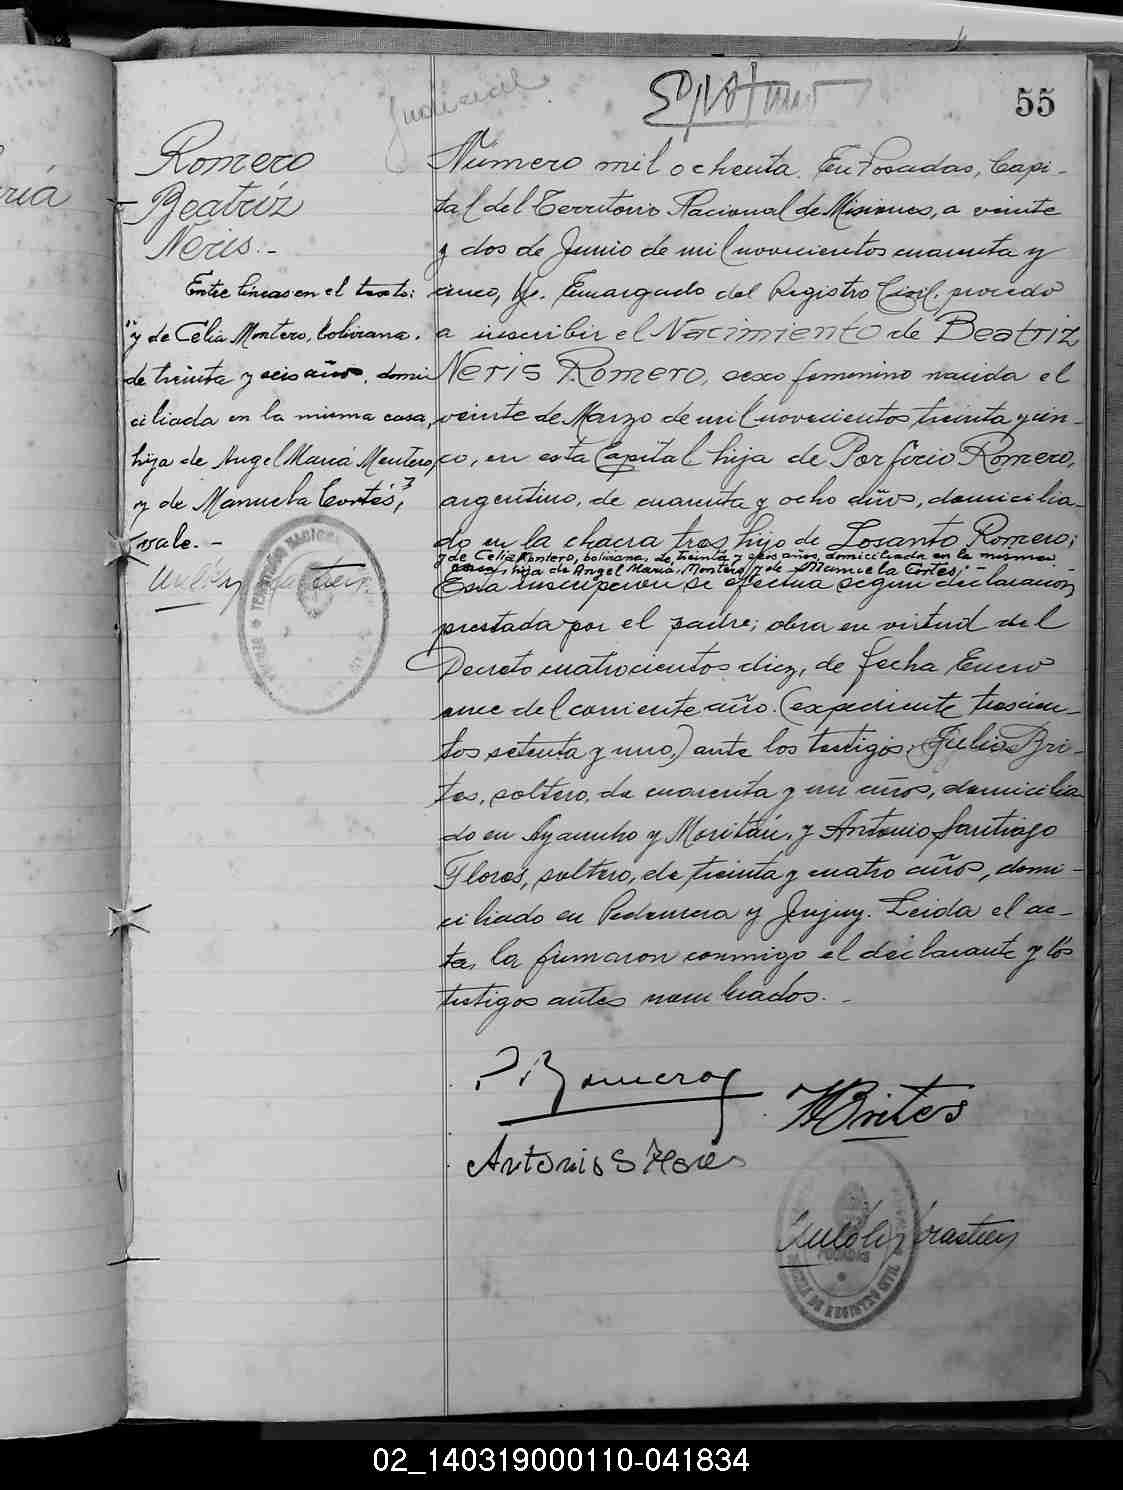 Judicial
55
ría
Romero
Beatriz
Neris.-
Entre líneas en el texto:
"y de Celia Montero, boliviana,
de treinta y seis años, domi-
ciliada en la misma casa,
hija de Angel María Montero,
y de Manuela Cortés;"
vale.-
Número mil ochenta. En Posadas, Capi-
tal del Territorio Nacional de Misiones, a veinte
y dos de Junio de mil novecientos cuarenta y
cinco, yo, Encargado del Registro Civil, procedo
a inscribir el Nacimiento de Beatriz
Neris Romero, sexo femenino nacida el
veinte de Marzo de mil novecientos treinta y cin-
co, en esta Capital hija de Porfirio Romero,
argentino, de cuarenta y ocho años, domicilia-
do en la chacra tres, hijo de Losanto Romero;
y de Celia Montero, boliviana, de treinta y seis años, domiciliada en la misma
casa, hija de Angel María Montero y de Manuela Cortés;-
Esta inscripción se efectúa según declaración
prestada por el padre; obra en virtud del
Decreto cuatrocientos diez, de fecha Enero
once del corriente año. (expediente trescien-
tos setenta y uno,) ante los testigos: Julio Bri-
tes, soltero, de cuarenta y un años, domicilia-
do en Ayacucho y Moritán, y Antonio Santiago
Flores, soltero, de treinta y cuatro años, domi-
ciliado en Pedernera y Jujuy. Leida el ac-
ta, la firmaron conmigo el declarante y los
testigos antes nombrados.-
P. Romero
Brites
Antonio S Flores
POSADAS
DE REGISTRO CIVIL
02_140319000110-041834